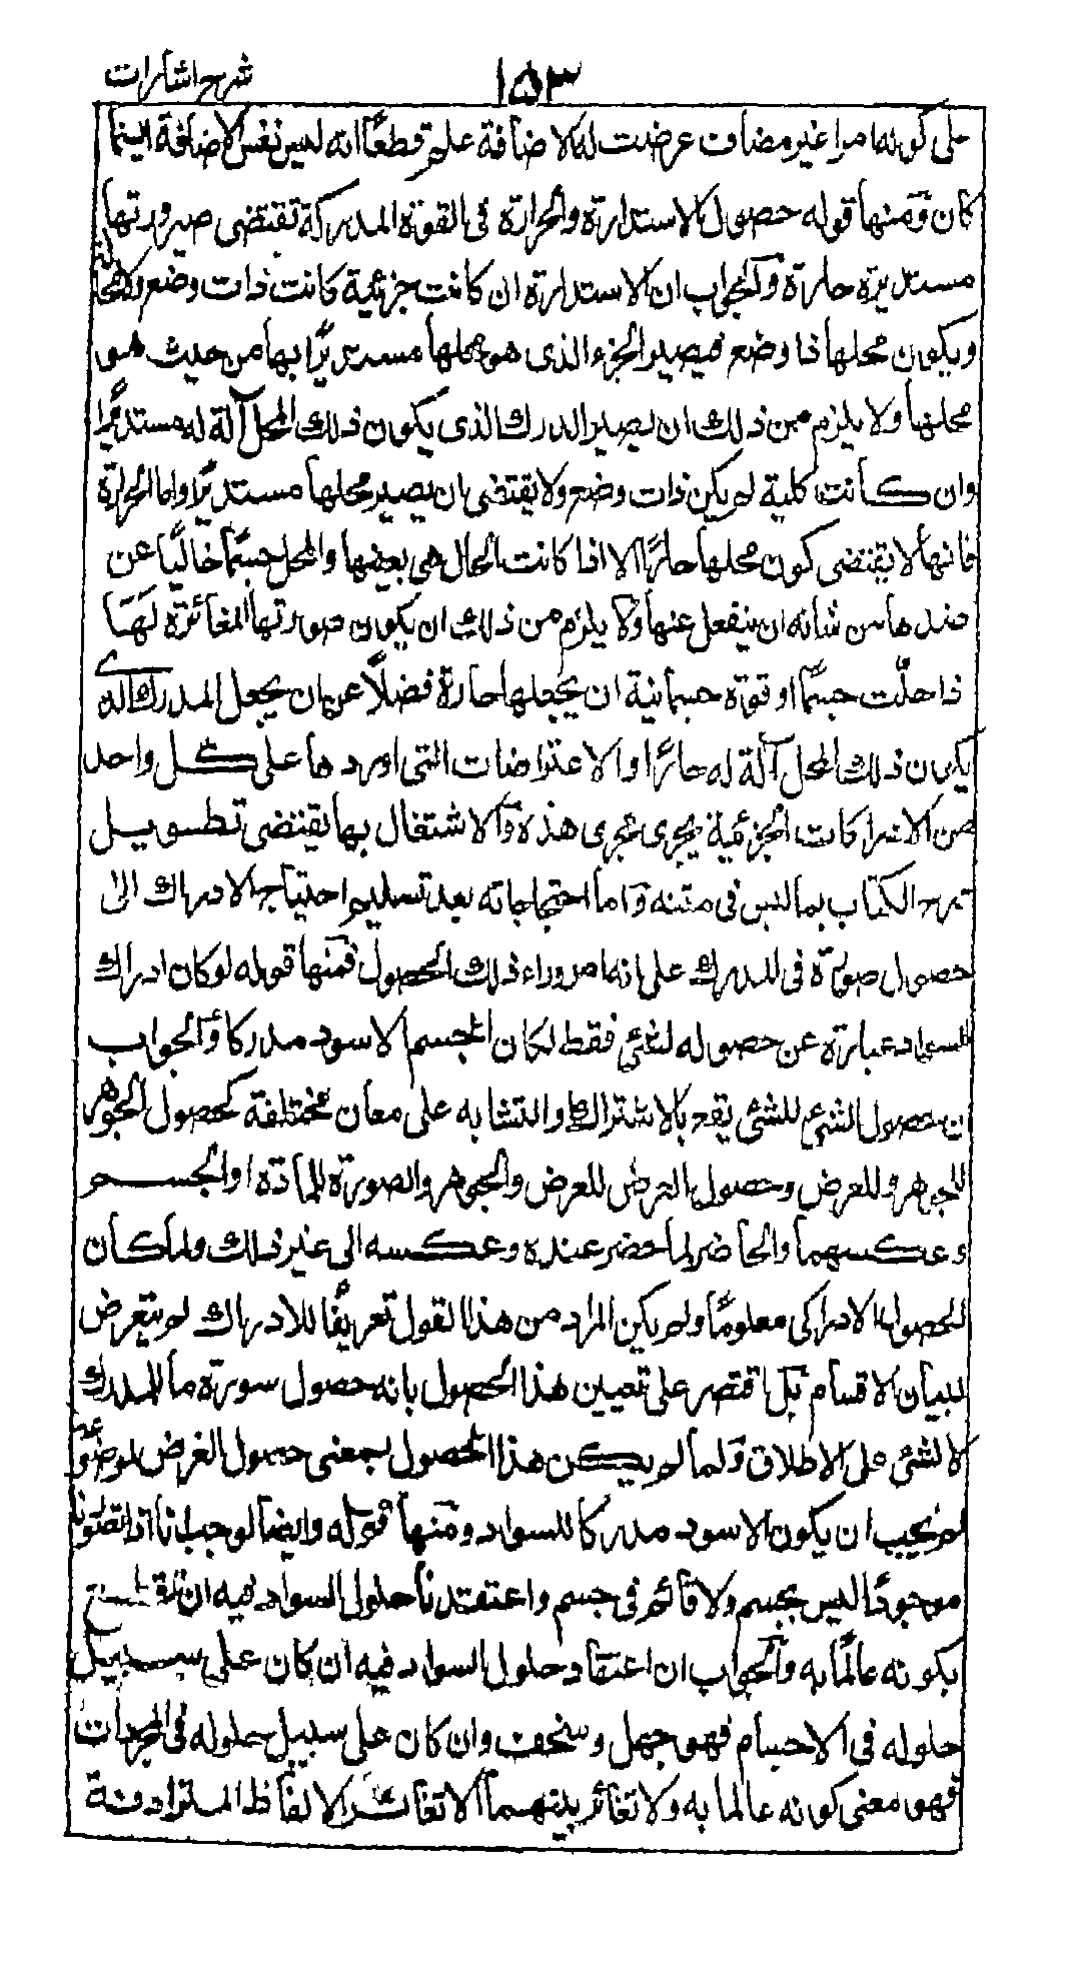 شرح اشارات
١٥٣
على كونه امرا غير مضاف عرضت له الاضافة علم قطعًا انه ليس نفس الاضافة اينما
كان ومنها قوله حصول الاستدارة والحرارة فى القوة المدركة تقتضى صيرورتها
مستديرة حارة والجواب ان الاستدارة ان كانت جزئية كانت ذات وضع
ويكون محلها ذا وضع فيصير الجزء الذى هو محلها مستديرًا بها من حيث هو
محلها ولا يلزم من ذلك ان يصير المدرك الذى يكون ذلك المحل آلة له مستديرًا
وان كانت كلية لم يكن ذات وضع ولا يقتضى ان يصير محلها مستديرًا واما الحرارة
فانها لا يقتضى كون محلها حارًا الا اذا كانت الحال هى بعينها والمحل جسمًا خاليًا عن
ضدها من شانه ان ينفعل عنها ولا يلزم من ذلك ان يكون صورتها المغائرة لَهَا
اذا حلّت جسمًا او قوة جسمانية ان يجعلها حارة فضلًا عن ان يجعل المدرك الذى
يكون ذلك المحل آلة له حارًا والاعتراضات التى اوردها على كل واحد
من الادراكات الجزئية يجرى مجرى هذه والاشتغال بها يقتضى تطويل
شرح الكتاب بما ليس فى متنه واما احتجاجاته بعد تسليم احتياج الادراك الىٰ
حصول صورة فى المدرك على انه امر وراء ذلك الحصول فمنها قوله لو كان ادراك
السواد عبارة عن حصوله لشئ فقط لكان الجسم الاسود مدركا والجواب
ان حصول الشئ للشئ يقع بالاشتراك والتشابه على معان مختلفة كحصول الجوهر
للجوهر وللعرض وحصول العرض للعرض والجوهر والصورة للمادة او الجسم
وعكسهما والحاضر لما حضر عنده وعكسه الى غير ذلك ولما كان
الحصول الادراكى معلومًا ولم يكن المراد من هذا القول تعريفًا للادراك لم يتعرض
لبيان الاقسام بل اقتصر على تعيين هذا الحصول بانه حصول صورة ما للمدرك
لا لشئ على الاطلاق ولما لم يكن هذا الحصول بمعنى حصول العرض لموضوعه
لم يجب ان يكون الاسود مدركا للسواد ومنها قوله وايضا لوجب انا اذا تصورنا
موجودًا ليس بجسم ولا قائم فى جسم واعتقدنا حلول السواد فيه ان نقطع
بكونه عالمًا به والجواب ان اعتقاد حلول السواد فيه ان كان على سبيل
حلوله فى الاجسام فهو جهل وسخف وان كان على سبيل حلوله فى المجردات
فهو معنى كونه عالما به ولا تغائر بينهما الا تغائر الالفاظ المترادفة